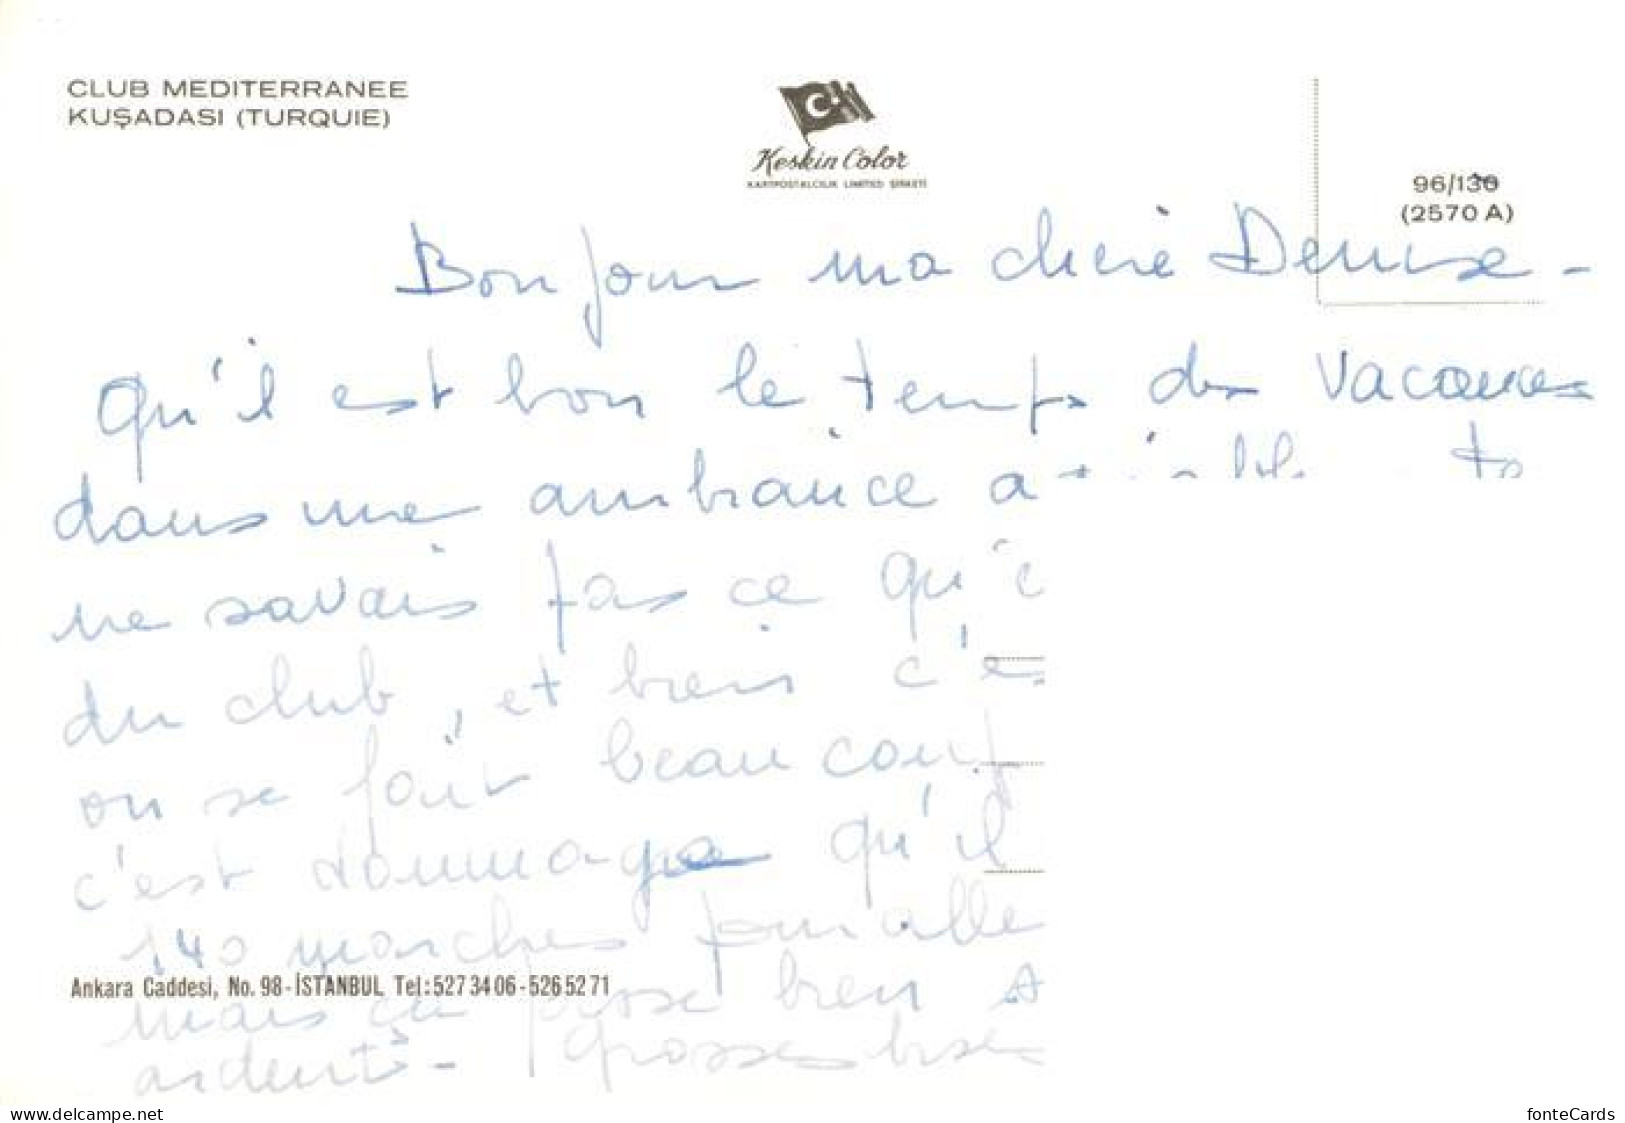 CLUB MEDITERRANEE
KUŞADASI (TURQUIE)
Keskin Color
KARTPOSTALCILIK LIMITED ŞİRKETİ
96/130
(2570 A)
Bonjour ma chère Denise -
Qu'il est bon le temps des vacances
dans une ambiance
ne savais pas ce qu'
du club, et bien c'e
on se fait beaucoup
c'est dommage qu'il
140 marches pour alle
Ankara Caddesi, No. 98-İSTANBUL Tel:5273406-5265271
mais ça bien
ardents - Grosses bises
www.delcampe.net
fonteCards